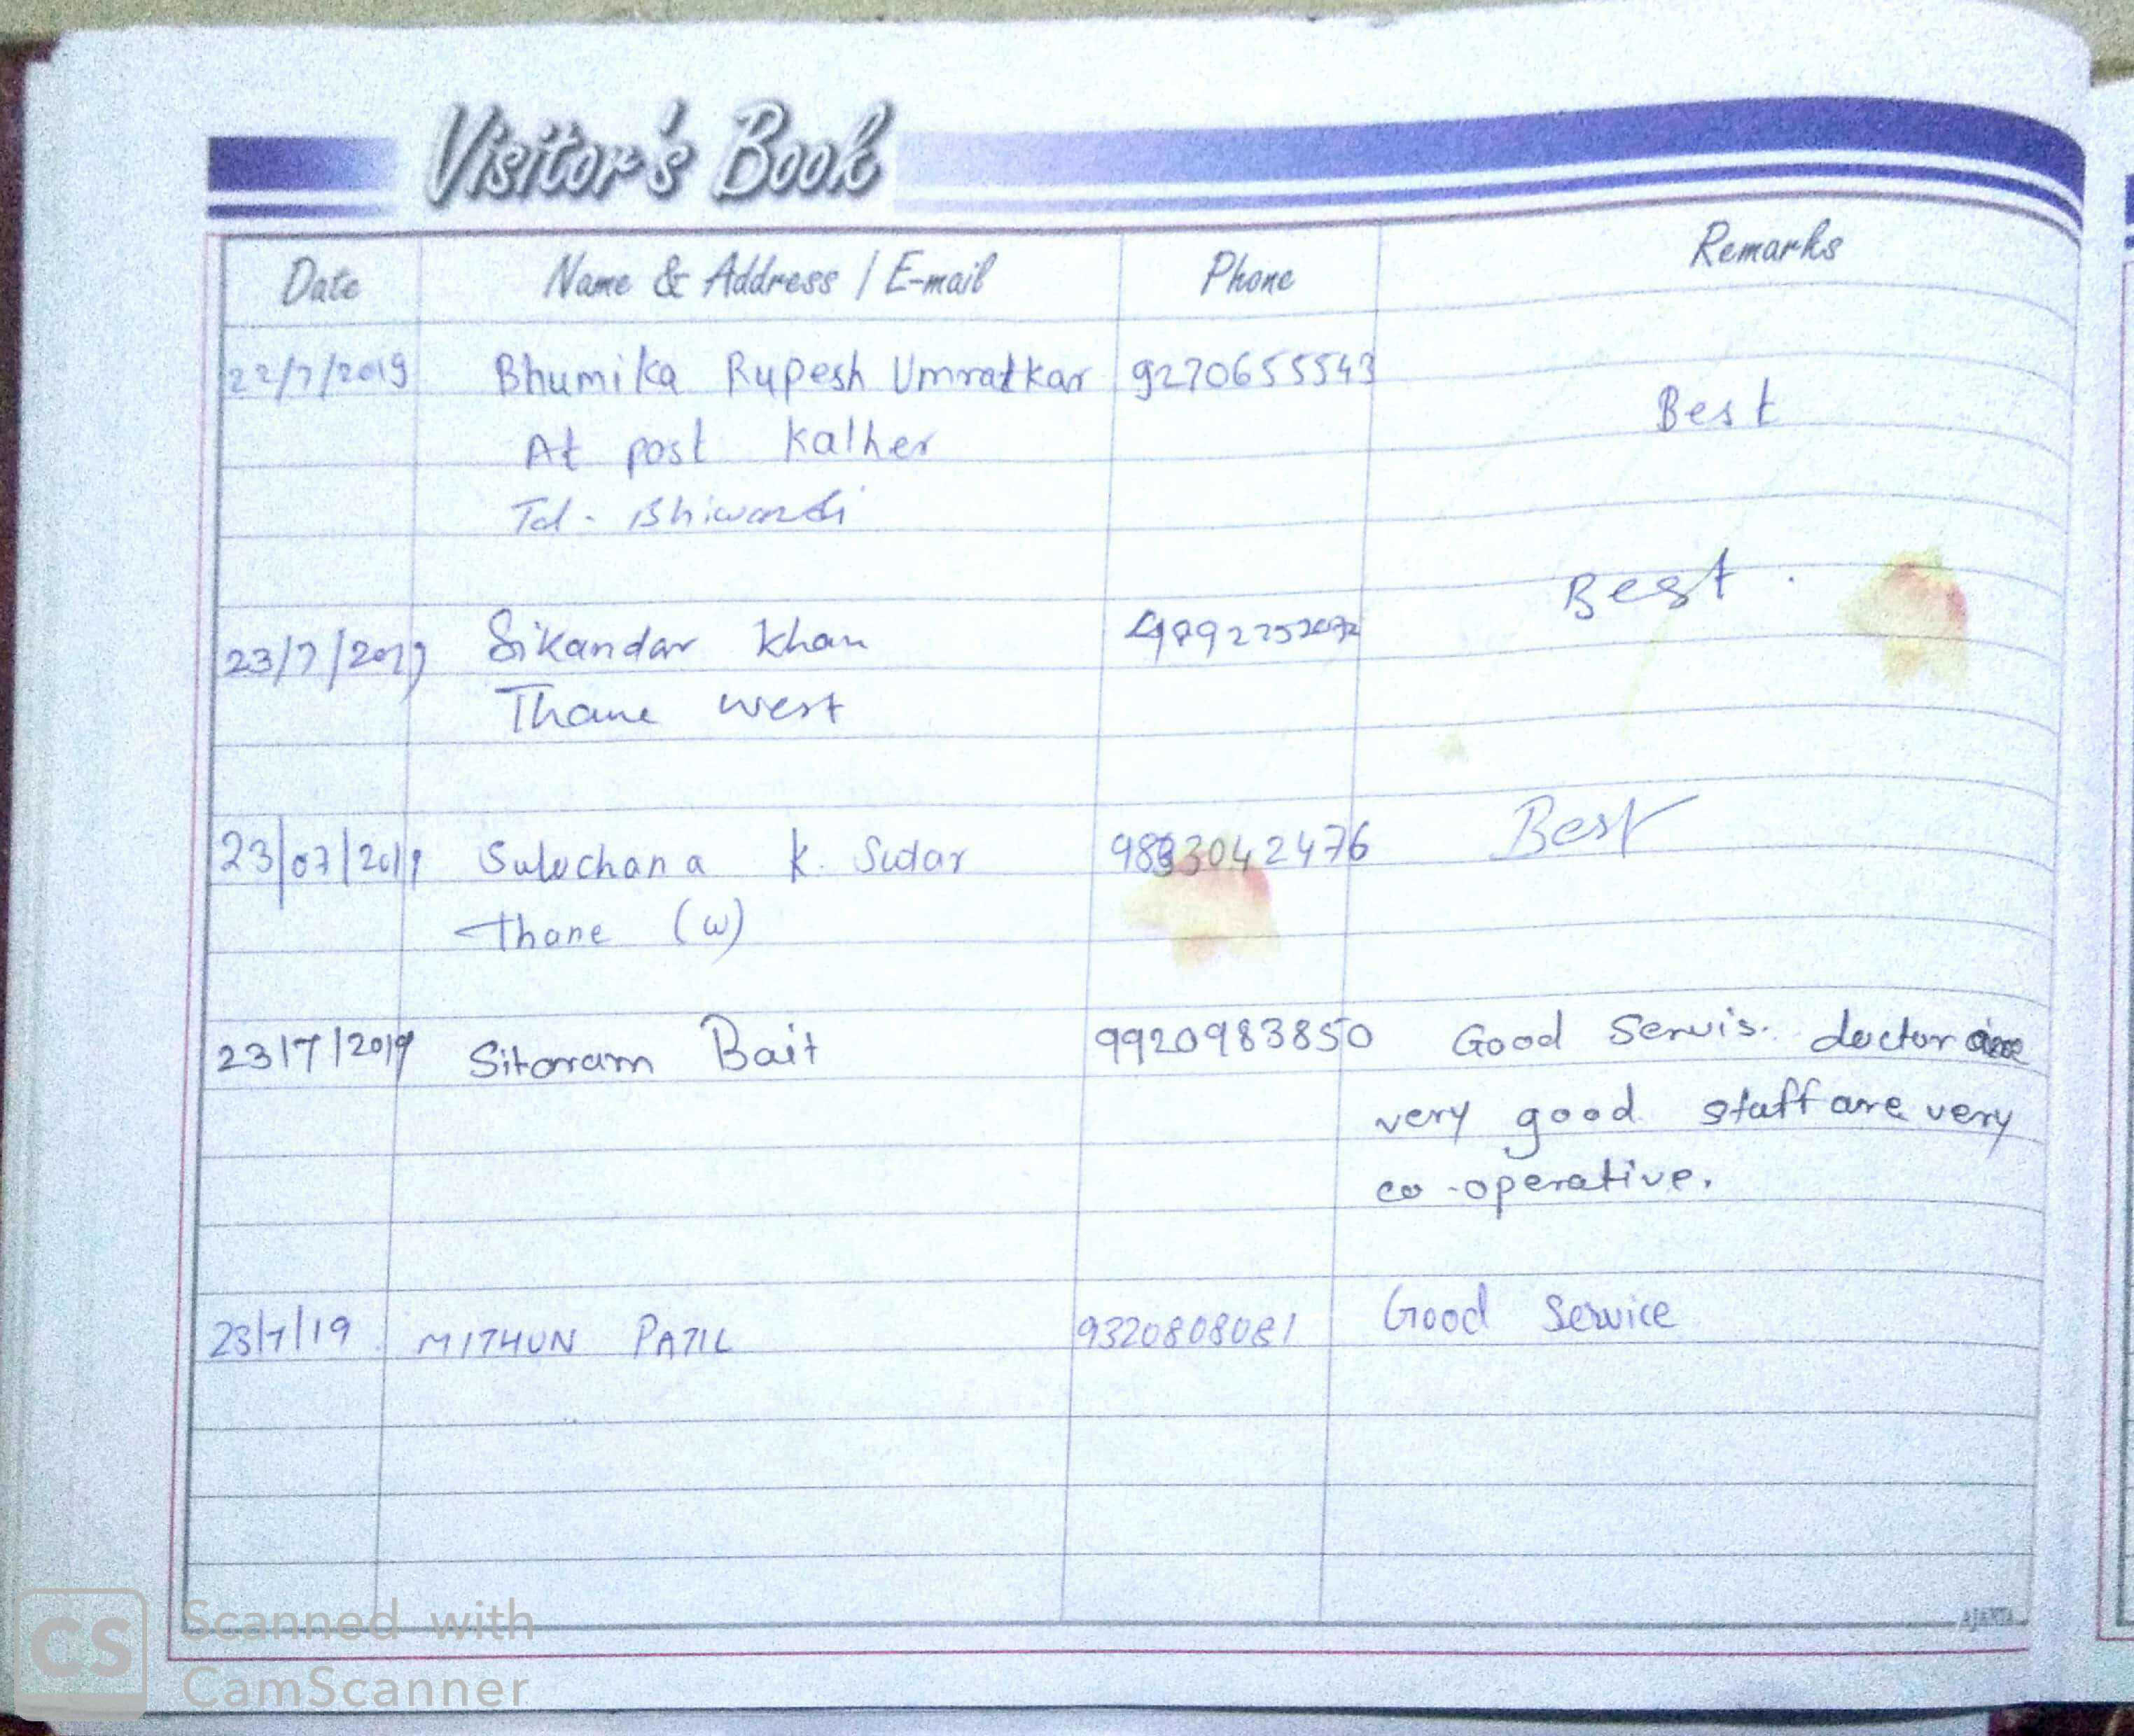 Visitor's Book
Date Name & Address / E-mail Phone Remarks
22/7/2019 Bhumika Rupesh Umratkar 9270655543
Best
At post Kalher
Tal - Bhiwandi
Best.
23/7/2019 Sikandar Khan
Thane west
23/07/2019 Sulochana K. Sutar 9833042476 Best
Thane (w)
23/7/2019 Sitaram Bait 9920983850 Good Servis. doctor are
very good staff are very
co-operative.
23/7/19 MITHUN PATIL 9320808081 Good Service
AJANTA
CS Scanned with
CamScanner